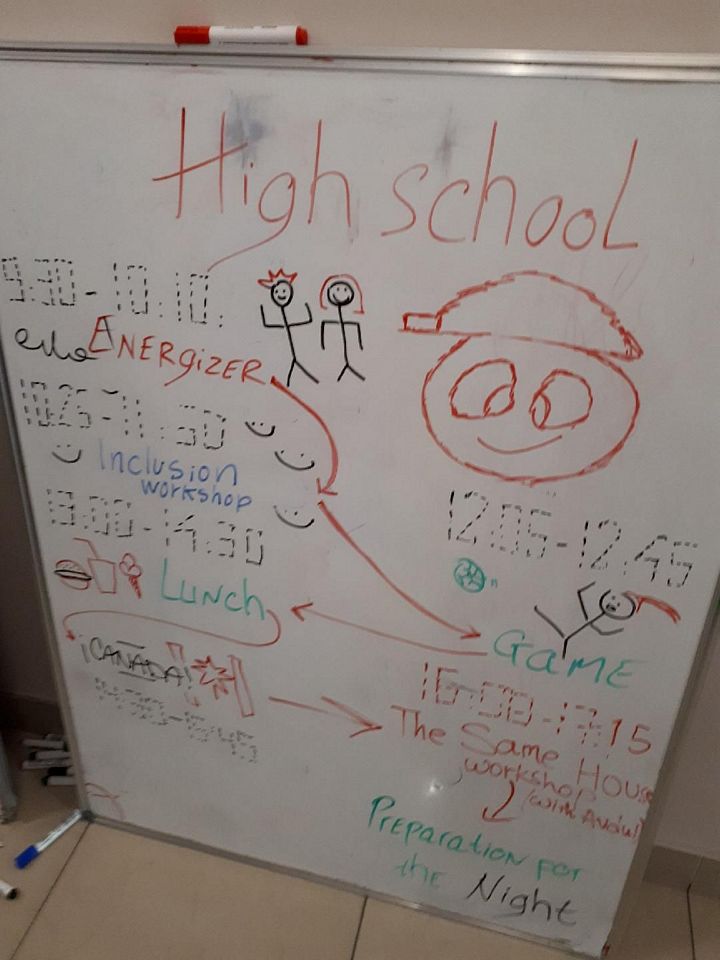 High school
9:30-10.10.
ENERGIZER
10:25-11:30
Inclusion
workshop
12:05-12:45
GAME
13:00-14:30
LUNCH
¡CANADA!
16:00-17:15
The Same House
workshop
PREPARATION FOR
the Night